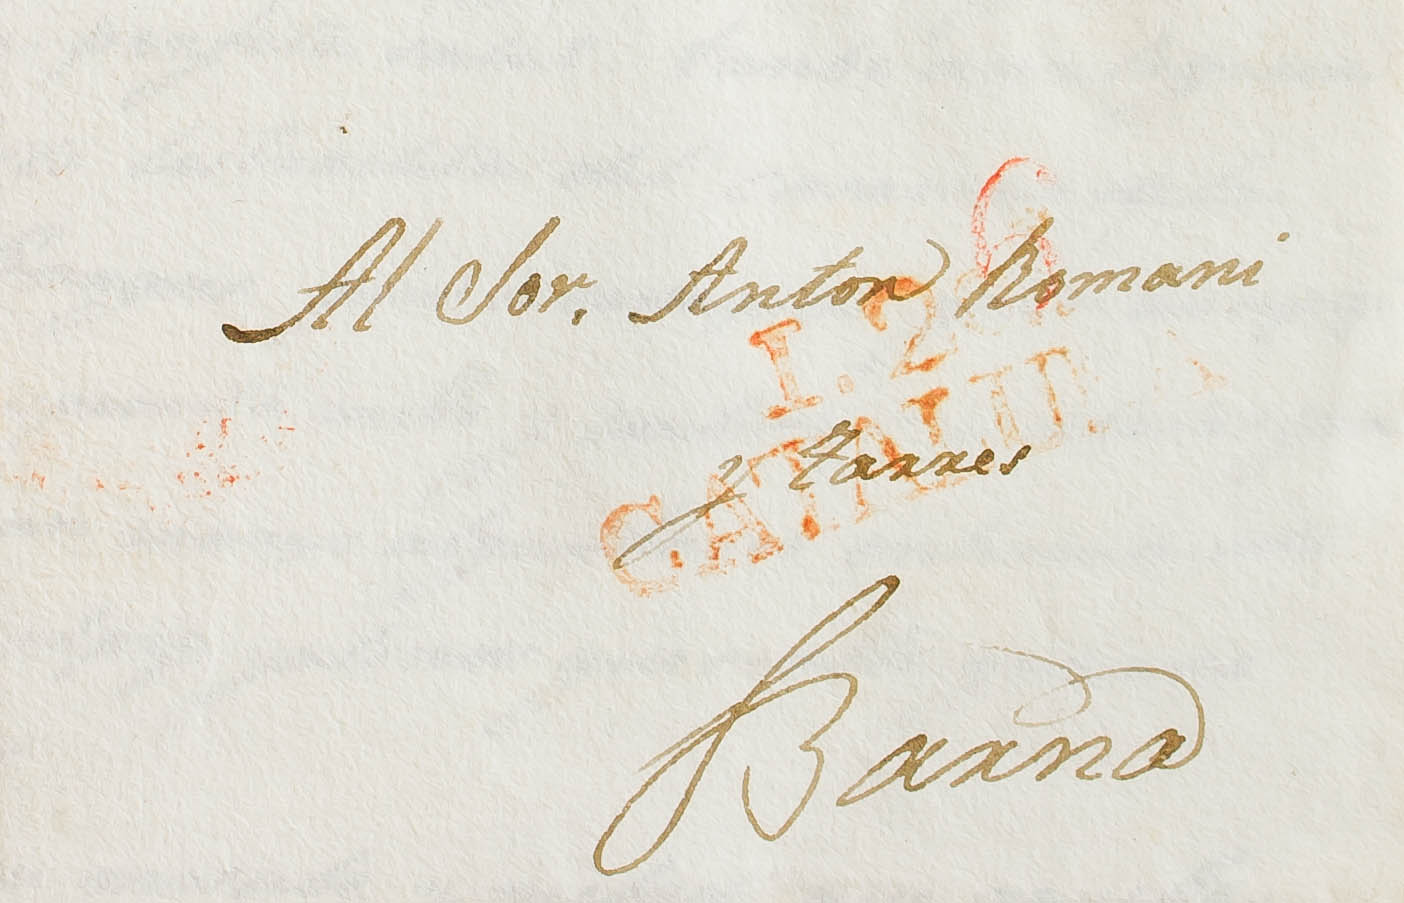 Al Sor. Anton Romani
6
I. 26.
CATALUÑA
y Tarres
Barna